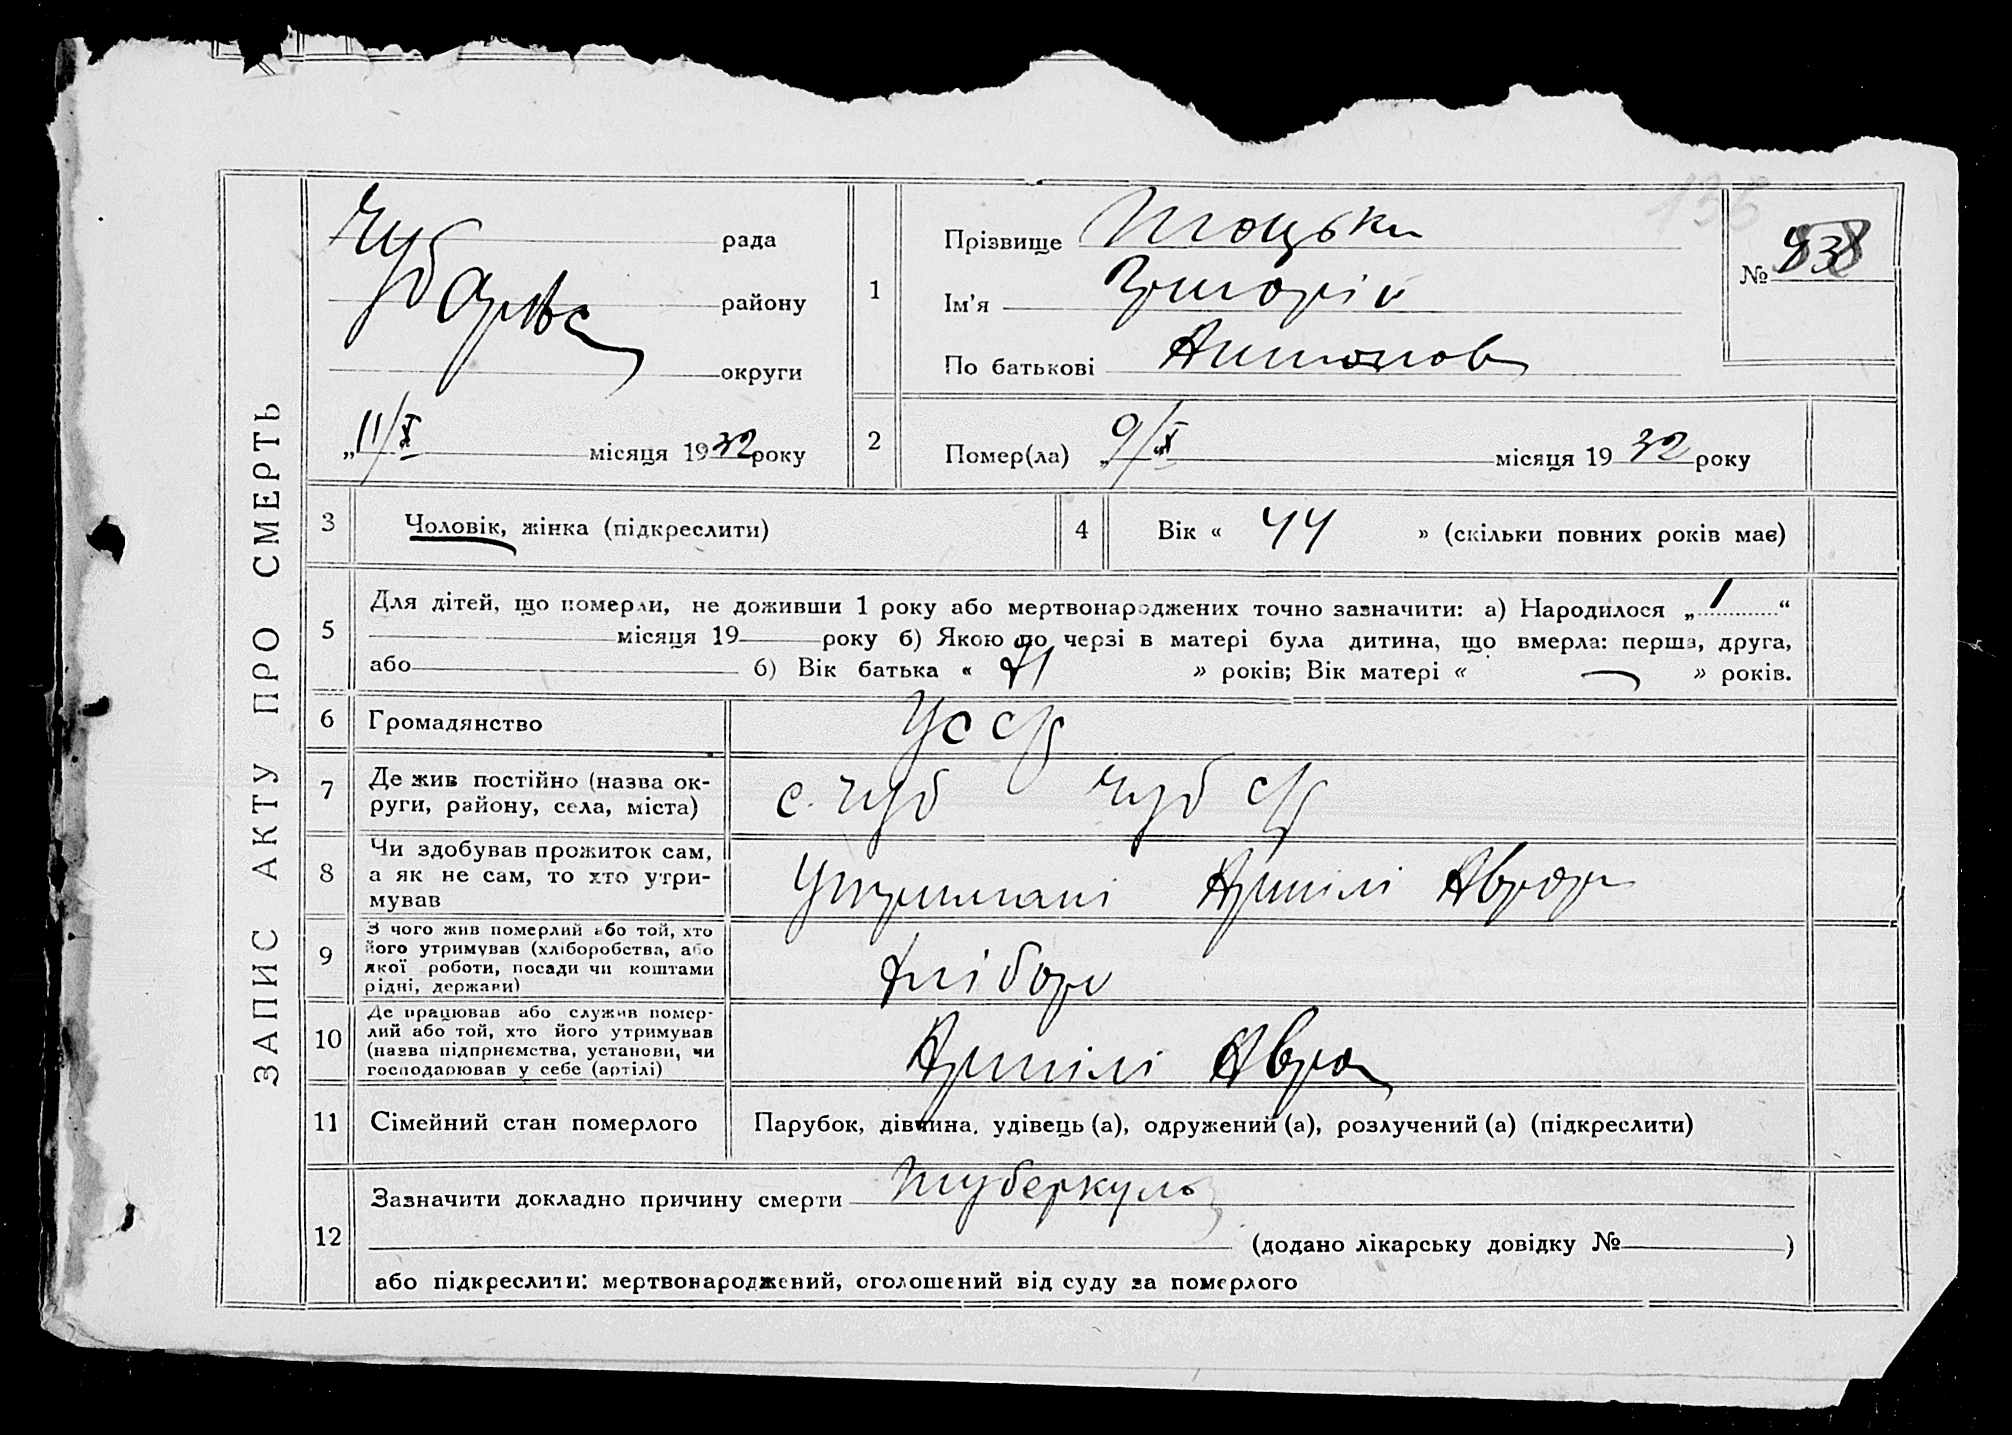 ЗАПИС АКТУ ПРО СМЕРТЬ
Чуб рада
району
округи
„11/X місяця 1932 року
1
Прізвище Тоцьки
Ім'я Григорій
По батькові Антонов
№ 838
2
Помер(ла) „9/X місяця 1932 року
3
Чоловік, жінка (підкреслити)
4
Вік « 44 » (скільки повних років має)
5
Для дітей, що померли, не доживши 1 року або мертвонароджених точно зазначити: а) Народилося „ “
місяця 19 року б) Якою по черзі в матері була дитина, що вмерла: перша, друга,
або б) Вік батька « » років; Вік матері « — » років.
6
Громадянство
УССР
7
Де жив постійно (назва ок-
руги, району, села, міста)
с. Чуб Чуб
8
Чи здобував прожиток сам,
а як не сам, то хто утри-
мував
Утримани Артілі Аврор
9
З чого жив померлий або той, хто
його утримував (хліборобства, або
якої роботи, посади чи коштами
рідні, держави)
хлібор
10
Де працював або служив помер-
лий або той, хто його утримував
(назва підприємства, установи, чи
господарював у себе (артілі)
Артілі Авро
11
Сімейний стан померлого
Парубок, дівчина, удівець (а), одружений (а), розлучений (а) (підкреслити)
12
Зазначити докладно причину смерти туберкульо
(додано лікарську довідку № )
або підкреслити: мертвонароджений, оголошений від суду за померлого